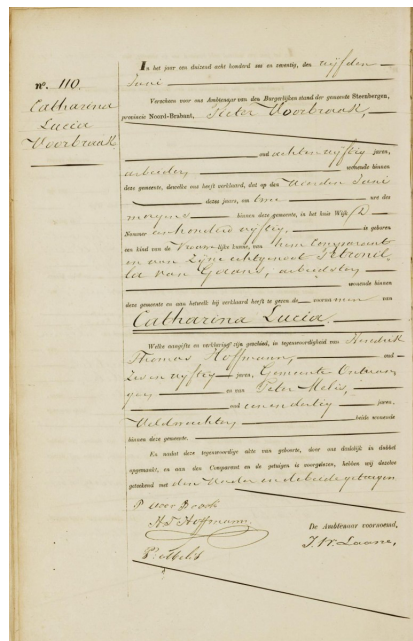 n°. 110.
Catharina
Lucia
Voorbraak
In het jaar een duizend acht honderd zes en zeventig, den vijfden
Juni
Verscheen voor ons Ambtenaar van den Burgerlijken stand der gemeente Steenbergen,
provincie Noord-Brabant, Pieter Voorbraak,
oud acht en vijftig jaren,
arbeider, wonende binnen
deze gemeente, dewelke ons heeft verklaard, dat op den Juni
dezes jaars, om ure des
morgens binnen deze gemeente, in het huis Wijk D
Nummer een honderd vijftig, is geboren
een kind van de vrouwelijke kunne, van hem Comparant
en van zijne echtgenoot Petronel
la van arbeidster
wonende binnen
deze gemeente en aan hetwelk hij verklaard heeft te geven de voornamen van
Catharina Lucia.
Welke aangifte en verklaring zijn geschied, in tegenwoordigheid van Hendrik
Thomas Hoffmann, oud
zes en vijftig jaren, Gemeente Ontvan
ger en van Peter Melis,
oud een en dertig jaren,
Veldwachter, beide wonende
binnen deze gemeente.
En nadat deze tegenwoordige akte van geboorte, door ons dadelijk in dubbel
opgemaakt, en aan den Comparant en de getuigen is voorgelezen, hebben wij dezelve
geteekend met den Vader en de beide getuigen
P voor Braak
H.T. Hoffmann.
P. Melis
De Ambtenaar voornoemd,
J.W. Laane,